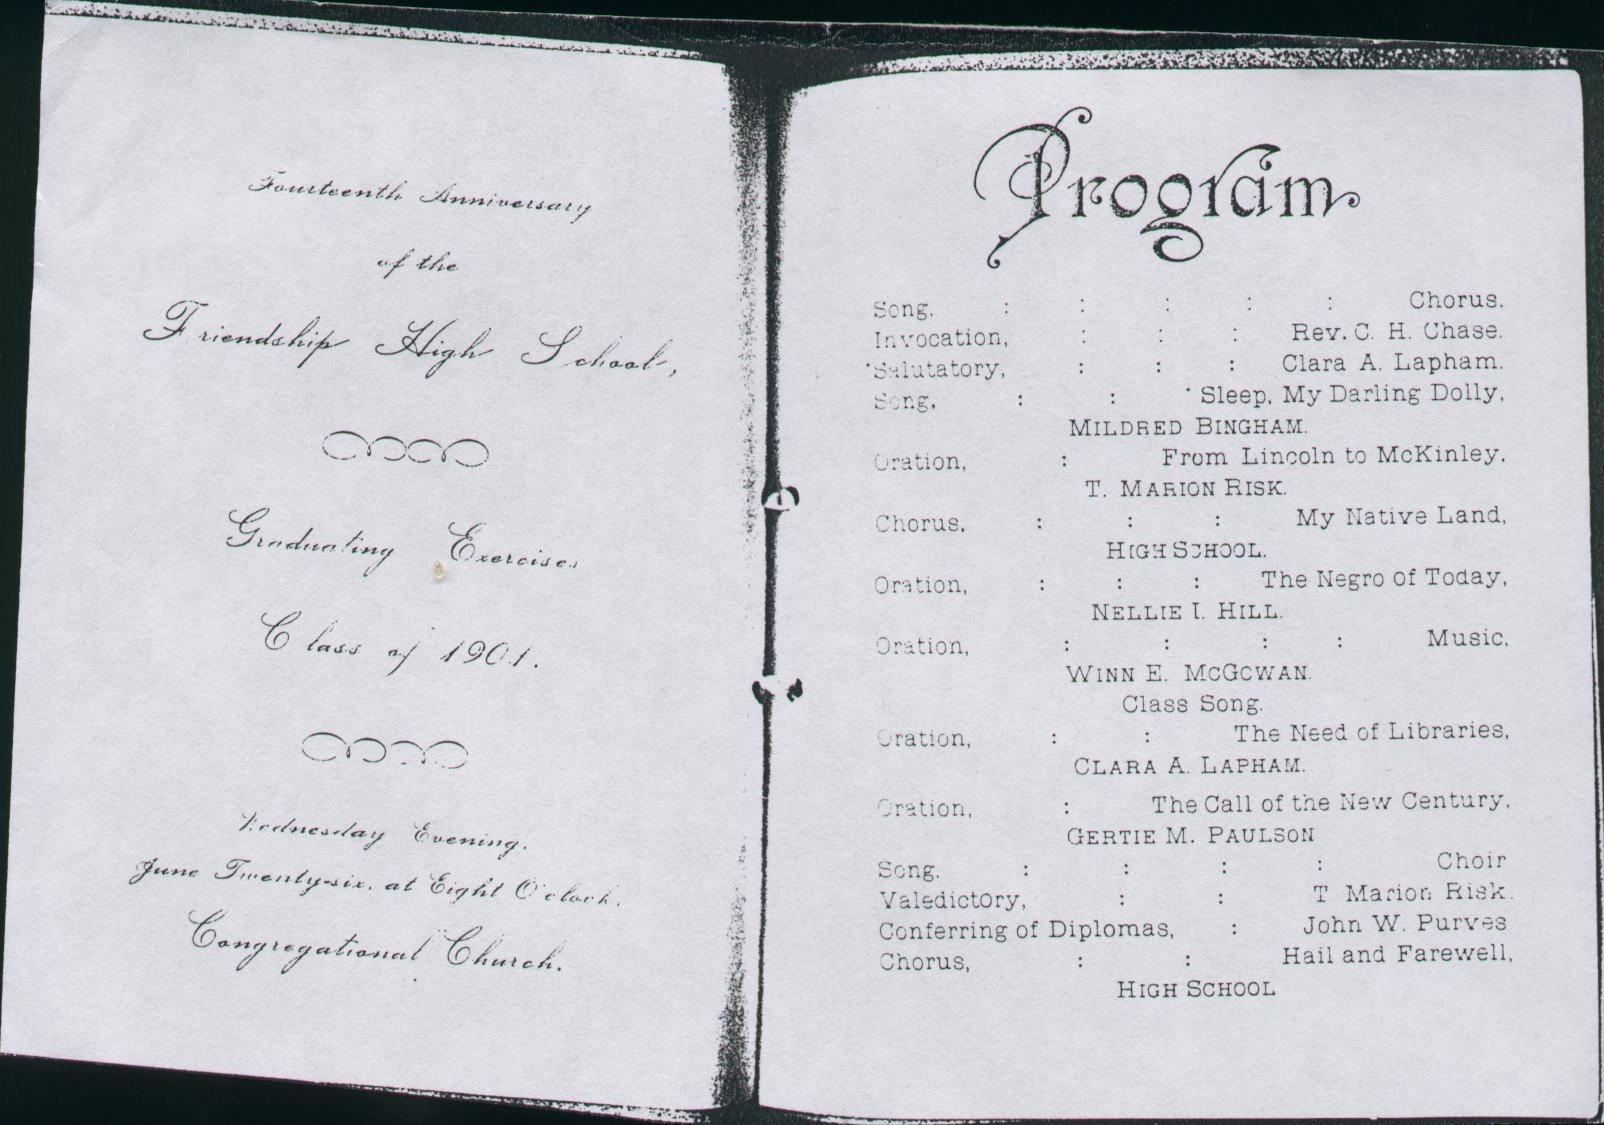 Fourteenth Anniversary
of the
Friendship High School,
Graduating Exercises
Class of 1901.
Wednesday Evening.
June Twenty-six. at Eight O'clock.
Congregational Church.
Program
Song. : : : : : Chorus.
Invocation, : : : Rev. C. H. Chase.
Salutatory, : : : Clara A. Lapham.
Song, : : Sleep, My Darling Dolly,
MILDRED BINGHAM.
Oration, : From Lincoln to McKinley,
T. MARION RISK.
Chorus, : : : My Native Land,
HIGH SCHOOL.
Oration, : : : The Negro of Today,
NELLIE I. HILL.
Oration, : : : : Music,
WINN E. MCGOWAN.
Class Song.
Oration, : : The Need of Libraries,
CLARA A. LAPHAM.
Oration, : The Call of the New Century,
GERTIE M. PAULSON
Song. : : : : Choir
Valedictory, : : T Marion Risk.
Conferring of Diplomas, : John W. Purves
Chorus, : : Hail and Farewell,
HIGH SCHOOL